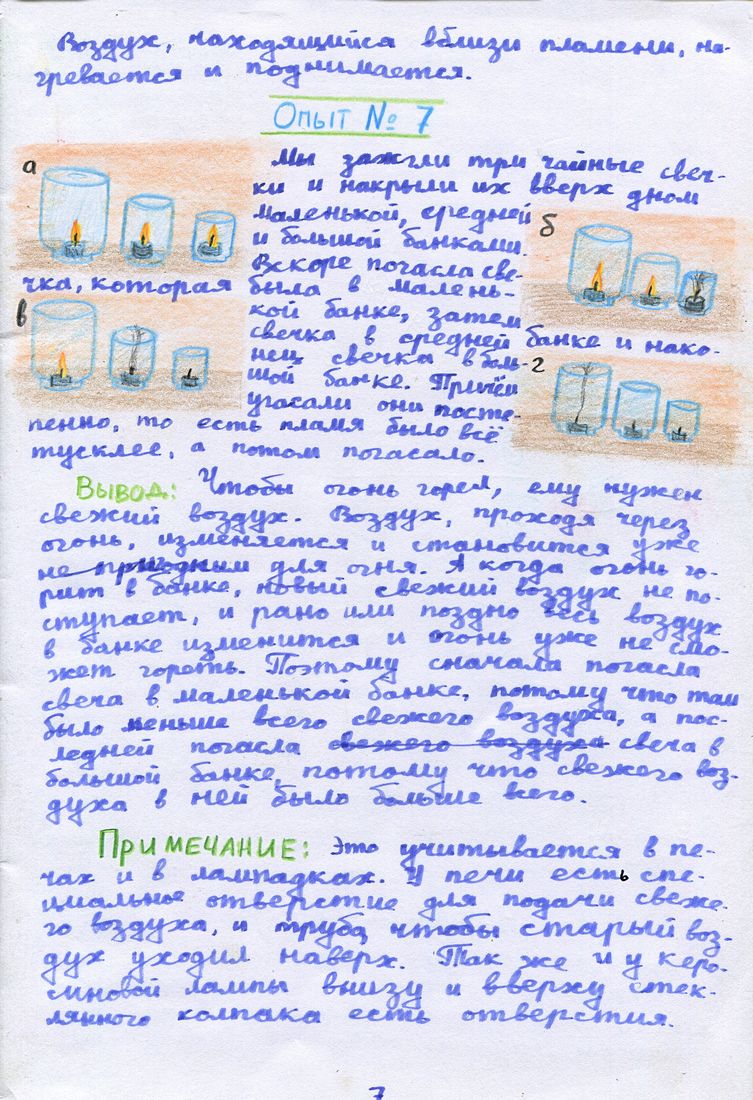 Воздух, находящийся вблизи пламени, на-
гревается и поднимается.
Опыт № 7
а
Мы зажгли три чайные свеч-
ки и накрыли их вверх дном
маленькой, средней
и большой банками.
Вскоре погасла све-
чка, которая была в малень-
кой банке, затем
свечка в средней банке и нако-
нец свечка в боль-
шой банке. Причём
угасали они посте-
пенно, то есть пламя было всё
тусклее, а потом погасало.
б
в
г
Вывод: Чтобы огонь горел, ему нужен
свежий воздух. Воздух, проходя через
огонь, изменяется и становится уже
не пригодным для огня. А когда огонь го-
рит в банке, новый свежий воздух не по-
ступает, и рано или поздно весь воздух
в банке изменится и огонь уже не смо-
жет гореть. Поэтому сначала погасла
свеча в маленькой банке, потому что там
было меньше всего свежего воздуха, а пос-
ледней погасла свежего воздуха свеча в
большой банке, потому что свежего воз-
духа в ней было больше всего.
Примечание: Это учитывается в пе-
чах и в лампадках. У печи есть спе-
циальное отверстие для подачи свеже-
го воздуха, и труба, чтобы старый воз-
дух уходил наверх. Так же и у керо-
синовой лампы внизу и вверху стек-
лянного колпака есть отверстия.
7